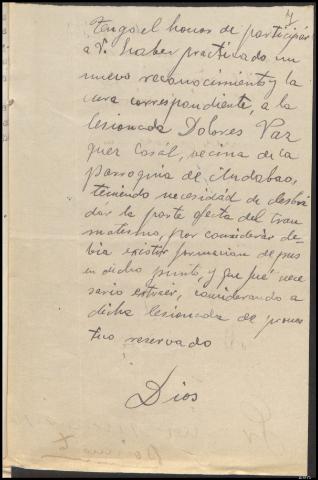 Tengo el honor de participar
a V. haber practicado un
nuevo reconocimiento y la
cura correspondiente, a la
lesionada Dolores Vaz
quez Casál, vecina de la
parroquia de Andabao,
teniendo necesidad de desbri
dar la parte afecta del trau
matismo, por considerar de-
bia existir formacion de pus
en dicho punto, y que fué nece
sario extraer, considerando a
dicha lesionada de pronos
tico reservado
Dios